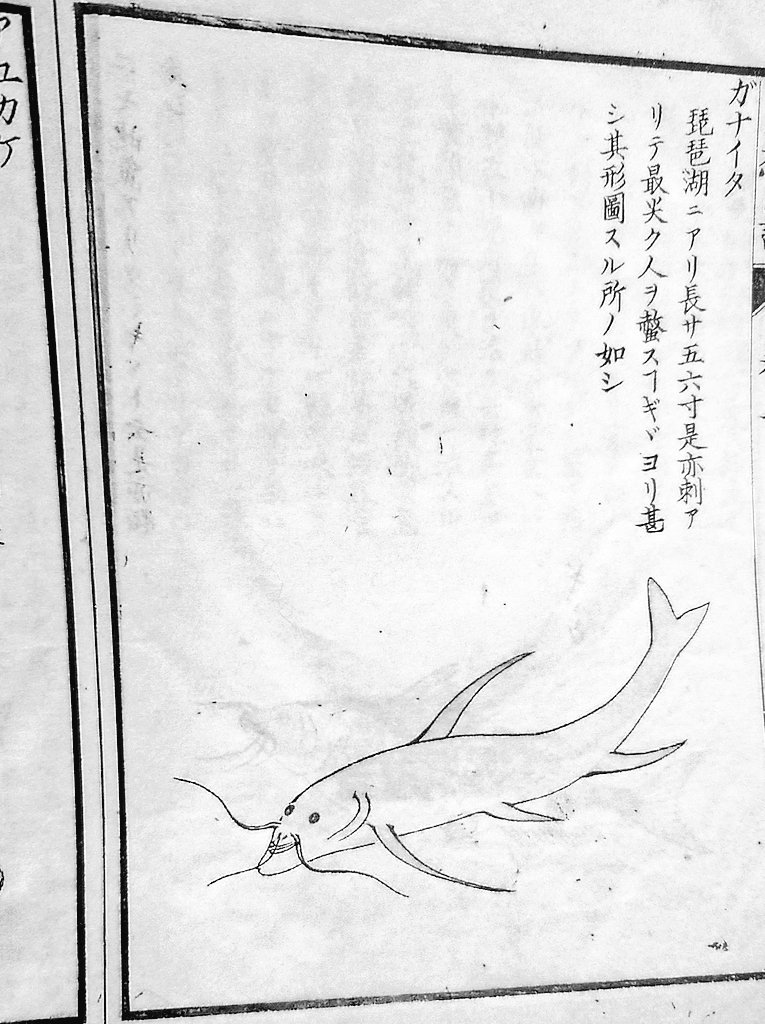 ガナイタ
琵琶湖ニアリ長サ五六寸是亦刺ア
リテ最尖ク人ヲ螫スヿギヾヨリ甚
シ其形圖スル所ノ如シ
アユカケ